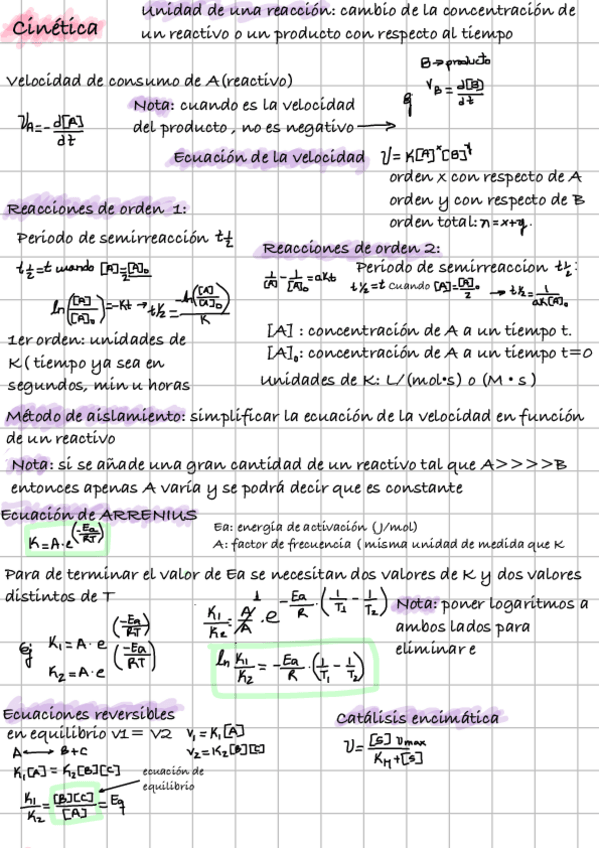 Cinética
Unidad de una reacción: cambio de la concentración de
un reactivo o un producto con respecto al tiempo
Velocidad de consumo de A(reactivo)
B→producto
V_A=-d[A]/dt
Nota: cuando es la velocidad
del producto, no es negativo →
ej V_B=d[B]/dt
Ecuación de la velocidad V=K[A]^x[B]^y
orden x con respecto de A
orden y con respecto de B
orden total: n=x+y.
Reacciones de orden 1:
Periodo de semirreacción t½
t½=t cuando [A]=[A]₀/2
ln([A]/[A]₀)=-Kt → t½=-ln([A]/[A]₀)/K
1er orden: unidades de
K(tiempo ya sea en
segundos, min u horas
Reacciones de orden 2:
Periodo de semirreaccion t½:
1/[A]-1/[A]₀=aKt t½=t cuando [A]=[A]₀/2 → t½=1/aK[A]₀
[A] : concentración de A a un tiempo t.
[A]₀: concentración de A a un tiempo t=0
Unidades de K: L/(mol•s) o (M • s)
Método de aislamiento: simplificar la ecuación de la velocidad en función
de un reactivo
Nota: si se añade una gran cantidad de un reactivo tal que A>>>>B
entonces apenas A varía y se podrá decir que es constante
Ecuación de ARRENIUS
K=A·e^(-Ea/RT)
Ea: energía de activación (J/mol)
A: factor de frecuencia (misma unidad de medida que K
Para de terminar el valor de Ea se necesitan dos valores de K y dos valores
distintos de T
ej K₁=A·e^(-Ea/RT)
K₂=A·e^(-Ea/RT)
K₁/K₂=A/A·e^-Ea/R·(1/T₁-1/T₂)
1
ln K₁/K₂=-Ea/R·(1/T₁-1/T₂)
Nota: poner logaritmos a
ambos lados para
eliminar e
Ecuaciones reversibles
en equilibrio v1= v2
V₁=K₁[A]
V₂=K₂[B][C]
A ⟷ B+C
K₁[A]=K₂[B][C]
ecuación de
equilibrio
K₁/K₂=[B][C]/[A]=Eq
Catálisis encimática
V=[S] Vmax/K_M+[S]